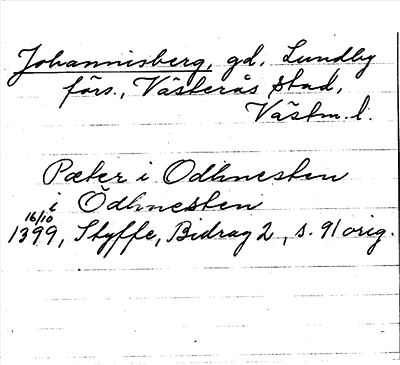 Johannisberg, gd, Lundby
förs., Västerås stad,
Västm. l.
Pæter i Odhnesten
i Ödhnesten
16/10
1399, Styffe, Bidrag 2, s. 91 orig.